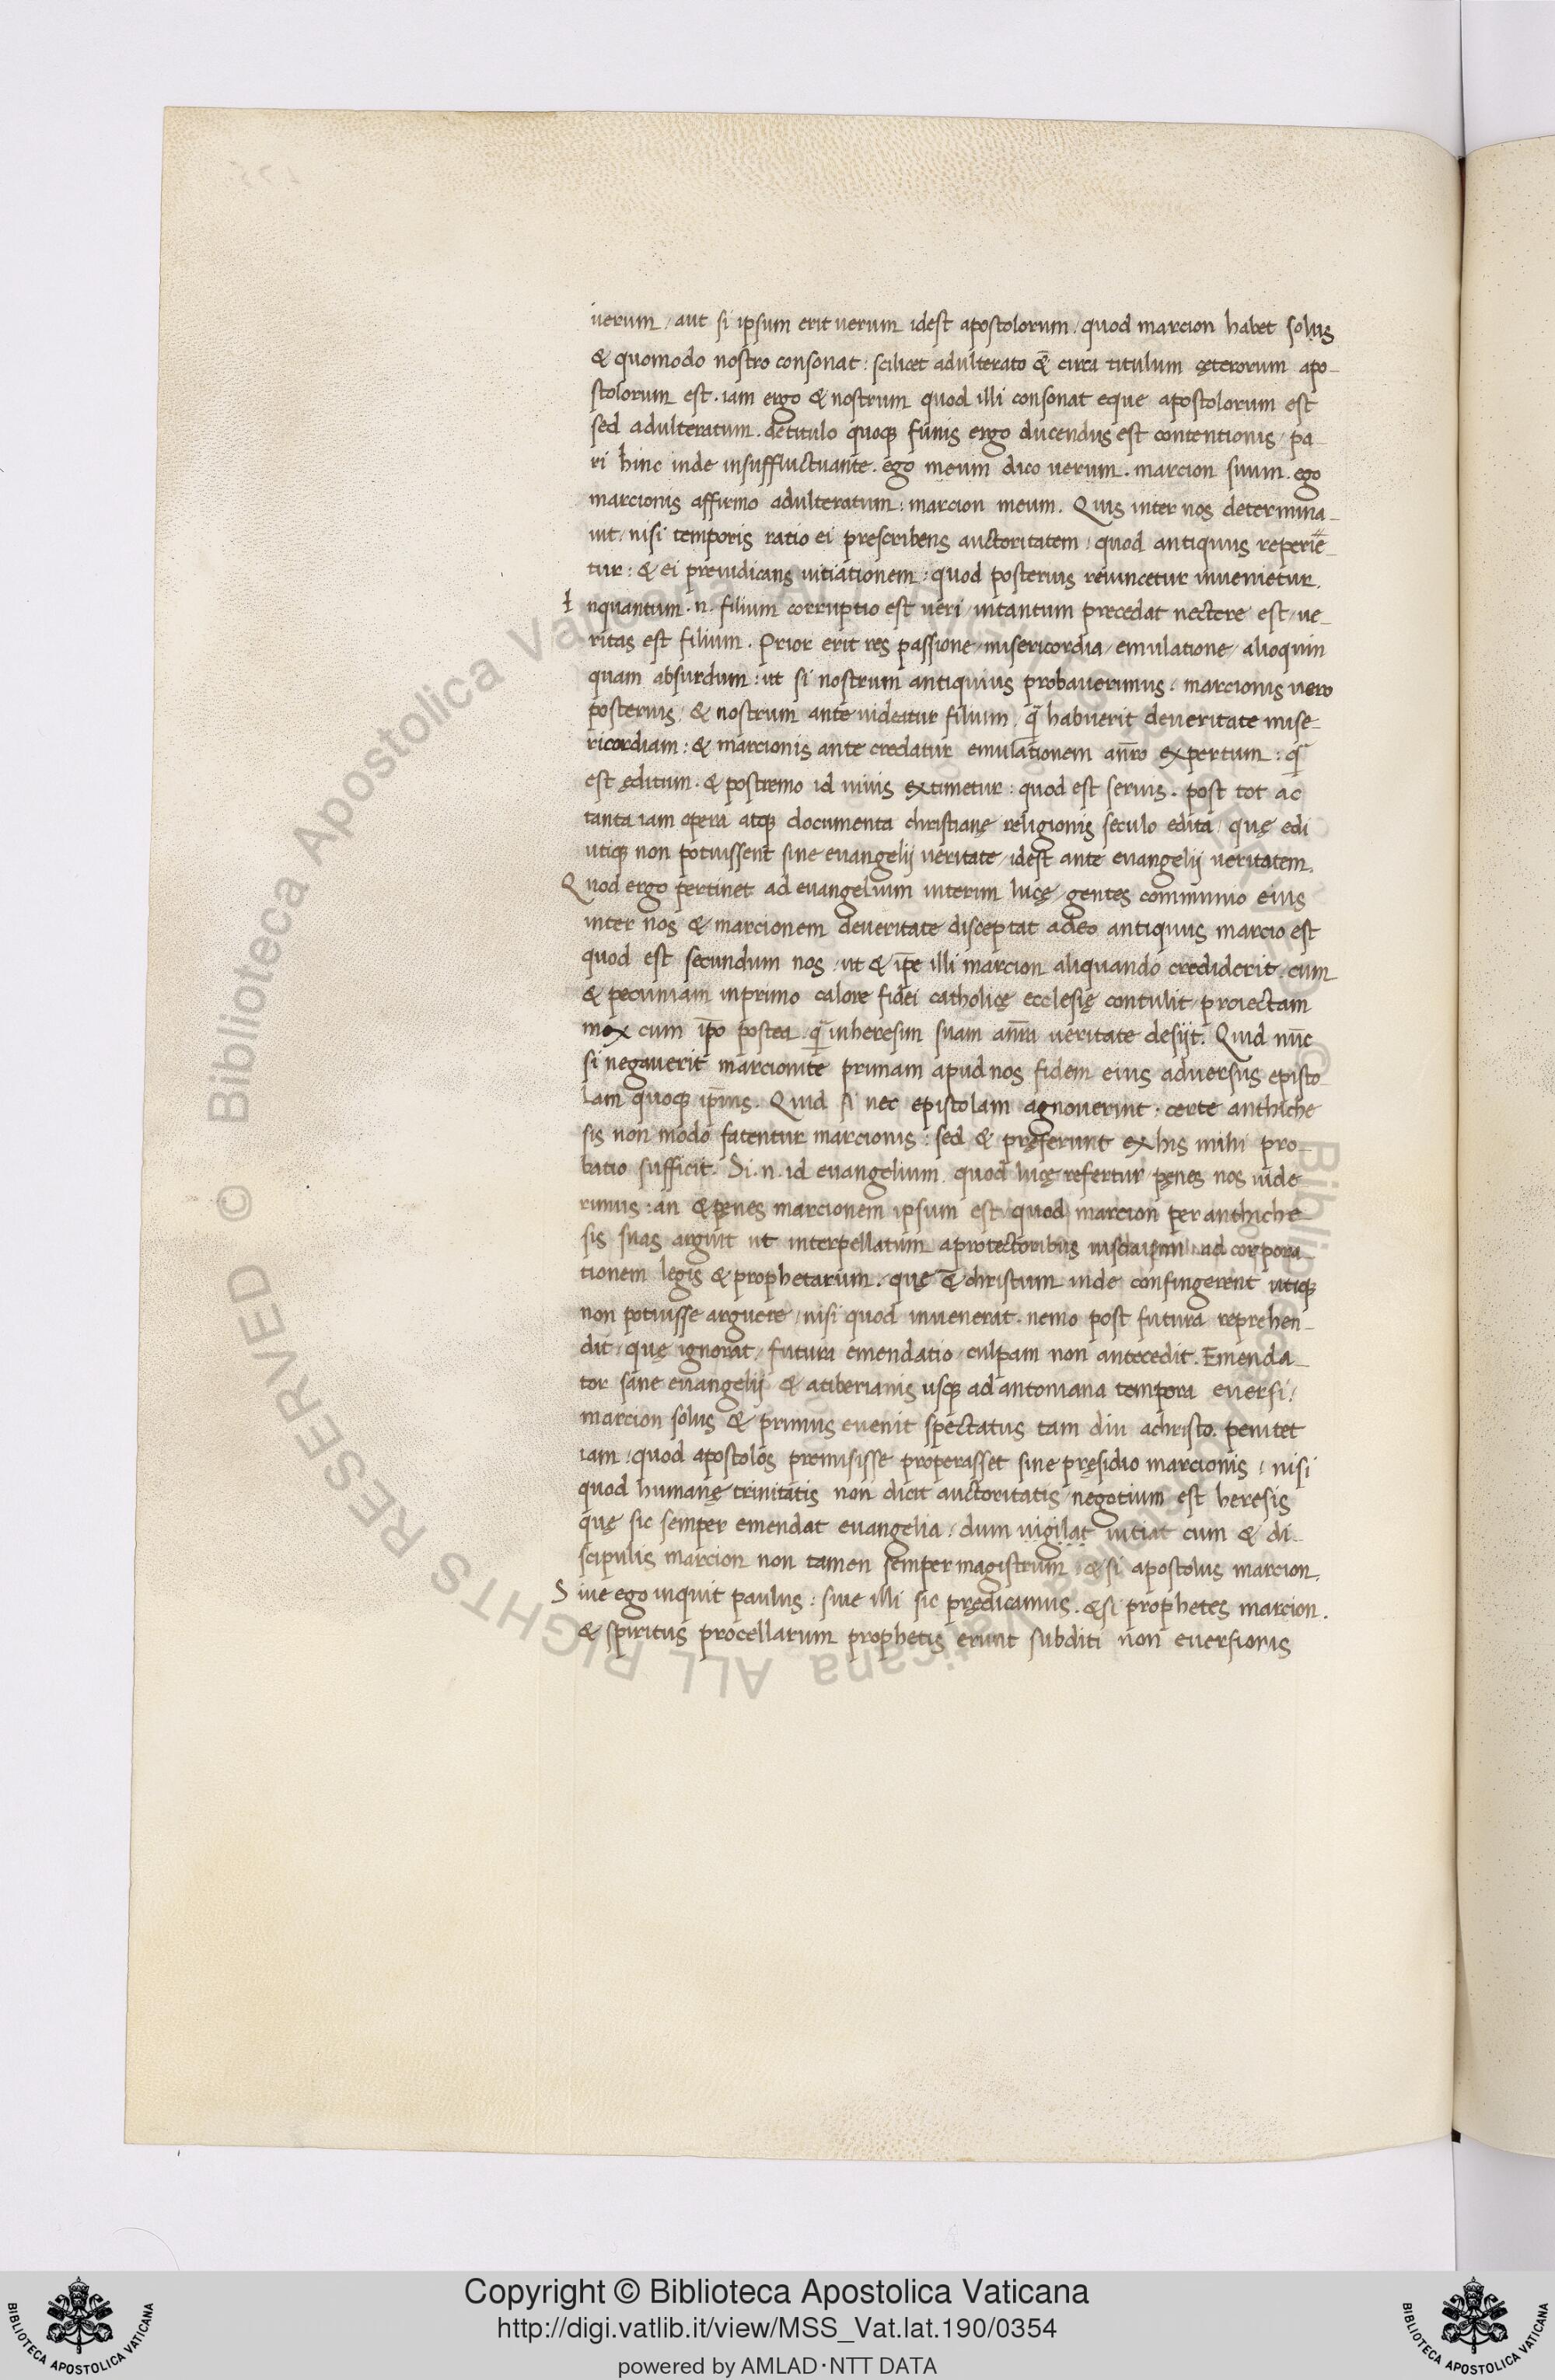 uerum / aut si ipsum erit uerum idest apostolorum / quod marcion habet solus
& quomodo nostro consonat : scilicet adulterato circa titulum ęterorum apo-
stolorum est . iam ergo & nostrum quod illi consonat eque apostolorum est
sed adulteratum . detitulo quoqꝫ funis ergo ducendus est contentionis / pa-
ri hinc inde insuffluctuante . ego meum dico uerum . marcion suum . ego
marcionis affirmo adulteratum : marcion meum . Quis inter nos determina-
uit / nisi temporis ratio ei prescribens auctoritatem / quod antiquius reperiē-
tur : & ei preiudicans uitiationem : quod posterius reuincetur inuenietur .
I nquantum . n . filium corruptio est ueri / intantum precedat nectere est / ue-
ritas est filium . Prior erit res passione / misericordia / emulatione / alioquin
quam absurdum : ut si nostrum antiquius probauerimus : marcionis uero
posterius / & nostrum ante uideatur filium . habuerit deueritate mise-
ricordiam : & marcionis ante credatur emulationem an̄ro expertum : 
est ęditum . & postremo id uiuis extimetur : quod est serius . post tot ac
tanta iam opera atqꝫ documenta christianę religionis seculo edita / quę edi
utiqꝫ non potuissent sine euangelij ueritate / idest ante euangelij ueritatem .
Q uod ergo pertinet ad euangelium interim lucę / gentes communio eius
inter nos & marcionem deueritate disceptat adeo antiquius marcio est
quod est secundum nos / ut & ip̄e illi marcion aliquando crediderit . cum
& pecuniam inprimo calore fidei catholicę ecclesię contulit / proiectam
mox cum ip̄o postea . inheresim suam an̄ra ueritate desijt . Quid nūc
si negauerit marcionite primam apud nos fidem eius aduersus episto
lam quoqꝫ ip̄ius . Quid si nec epistolam agnouerint . certe anthiche
sis non modo fatentur marcionis : sed & pręferunt ex his mihi pro-
batio sufficit . Si . n . id euangelium quod lucę refertur pęnes nos uide-
rimus : an & pęnes marcionem ipsum est quod marcion per anthiche-
sis suas arguit ut interpellatum aprotectoribus ad corpora-
tionem legis & prophetarum . quę & christum inde confingerent utiqꝫ
non potuisse arguere / nisi quod inuenerat . nemo post futura reprehen-
dit / quę ignorat / futura emendatio / culpam non antecedit . Emenda-
tor sane euangelij & atiberianis usqꝫ ad antoniana tempora euersi /
marcion solus & primus euenit spectatus tam diu achristo . penitet
iam / quod apostolos premisisse properasset sine pręsidio marcionis / nisi
quod humanę trinitatis non dicit auctoritatis negotium est heresis
quę sic semper emendat euangelia / dum uigilat uitiat cum & di-
scipulis marcion non tamen semper magistrum & si apostolus marcion .
S iue ego inquit paulus : siue illi sic prędicamus . & si prophetes marcion .
& spiritus procellarum prophetis erunt subditi non euersionis
Copyright © Biblioteca Apostolica Vaticana
http://digi.vatlib.it/view/MSS_Vat.lat.190/0354
powered by AMLAD·NTT DATA
BIBLIOTECA APOSTOLICA VATICANA
BIBLIOTECA APOSTOLICA VATICANA
© Biblioteca Apostolica Vaticana ALL RIGHTS RESERVED